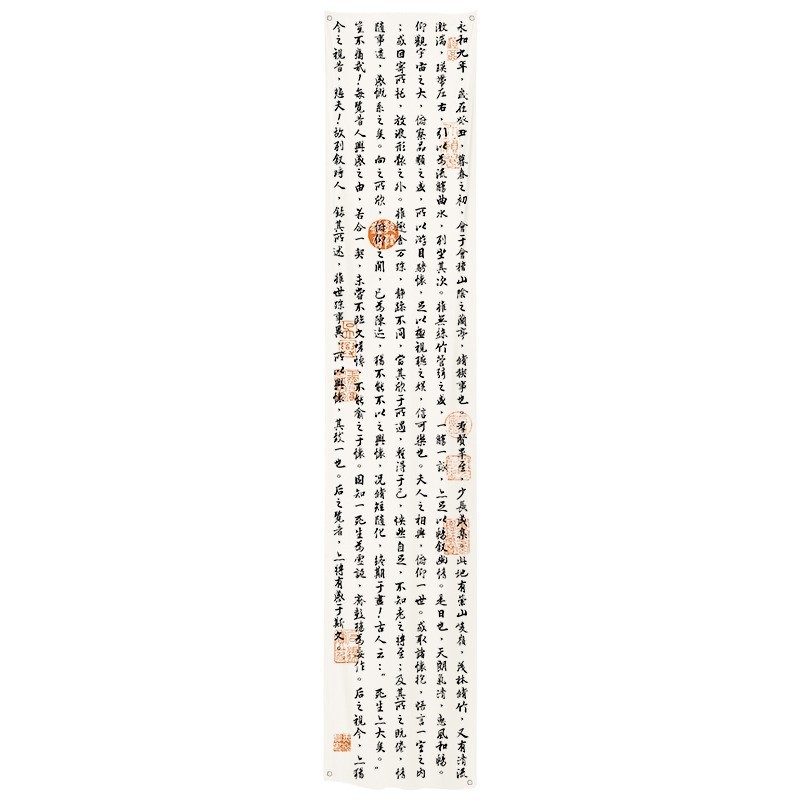 永和九年，歲在癸丑，暮春之初，會于會稽山陰之蘭亭，脩禊事也。羣賢畢至，少長咸集。此地有崇山峻嶺，茂林脩竹，又有清流
激湍，瑛帶左右，引以為流觴曲水，列坐其次。雖無絲竹管弦之盛，一觴一詠，亦足以暢敘幽情。是日也，天朗氣清，惠風和暢。
仰觀宇宙之大，俯察品類之盛，所以游目騁懷，足以極視聽之娛，信可樂也。夫人之相與，俯仰一世。或取諸懷抱，悟言一室之內
；或因寄所托，放浪形骸之外。雖趣舍万殊，靜躁不同，當其欣于所遇，暫得于己，怏然自足，不知老之將至；及其所之既倦，情
隨事遷，感慨系之矣。向之所欣，俯仰之間，已為陳迹，猶不能不以之興懷，況脩短隨化，終期于盡！古人云：“死生亦大矣。”
豈不痛哉！每覽昔人興感之由，若合一契，未嘗不臨文嗟悼，不能喻之于懷。固知一死生為虛誕，齊彭殤為妄作。后之視今，亦猶
今之視昔，悲夫！故列敘時人，錄其所述，雖世殊事異，所以興懷，其致一也。后之覽者，亦將有感于斯文。